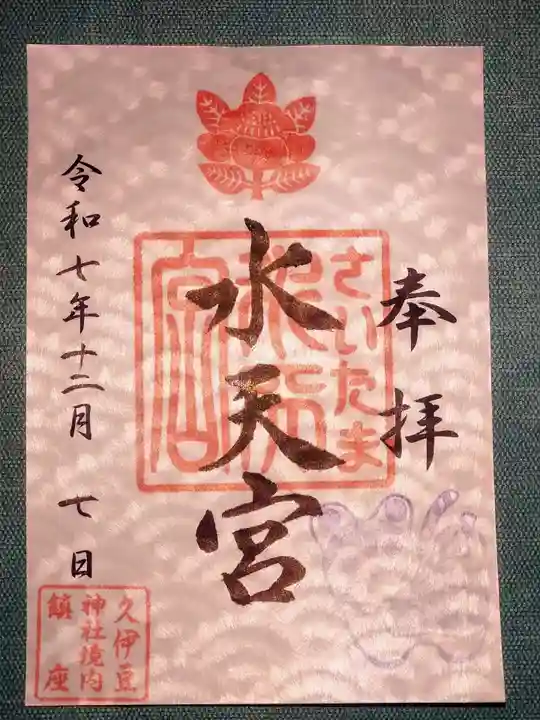 奉拝
さいたま
水天宮
令和七年十二月 七日
久伊豆
神社境内
鎮座